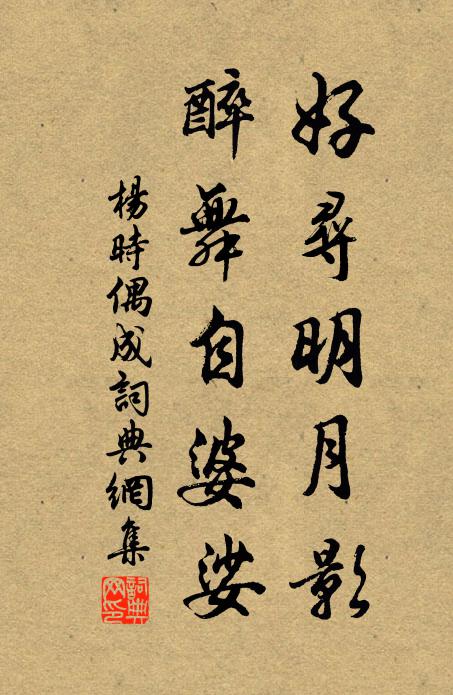 好尋明月影
醉舞自婆娑
楊時偶成詞典網集
詞典网印